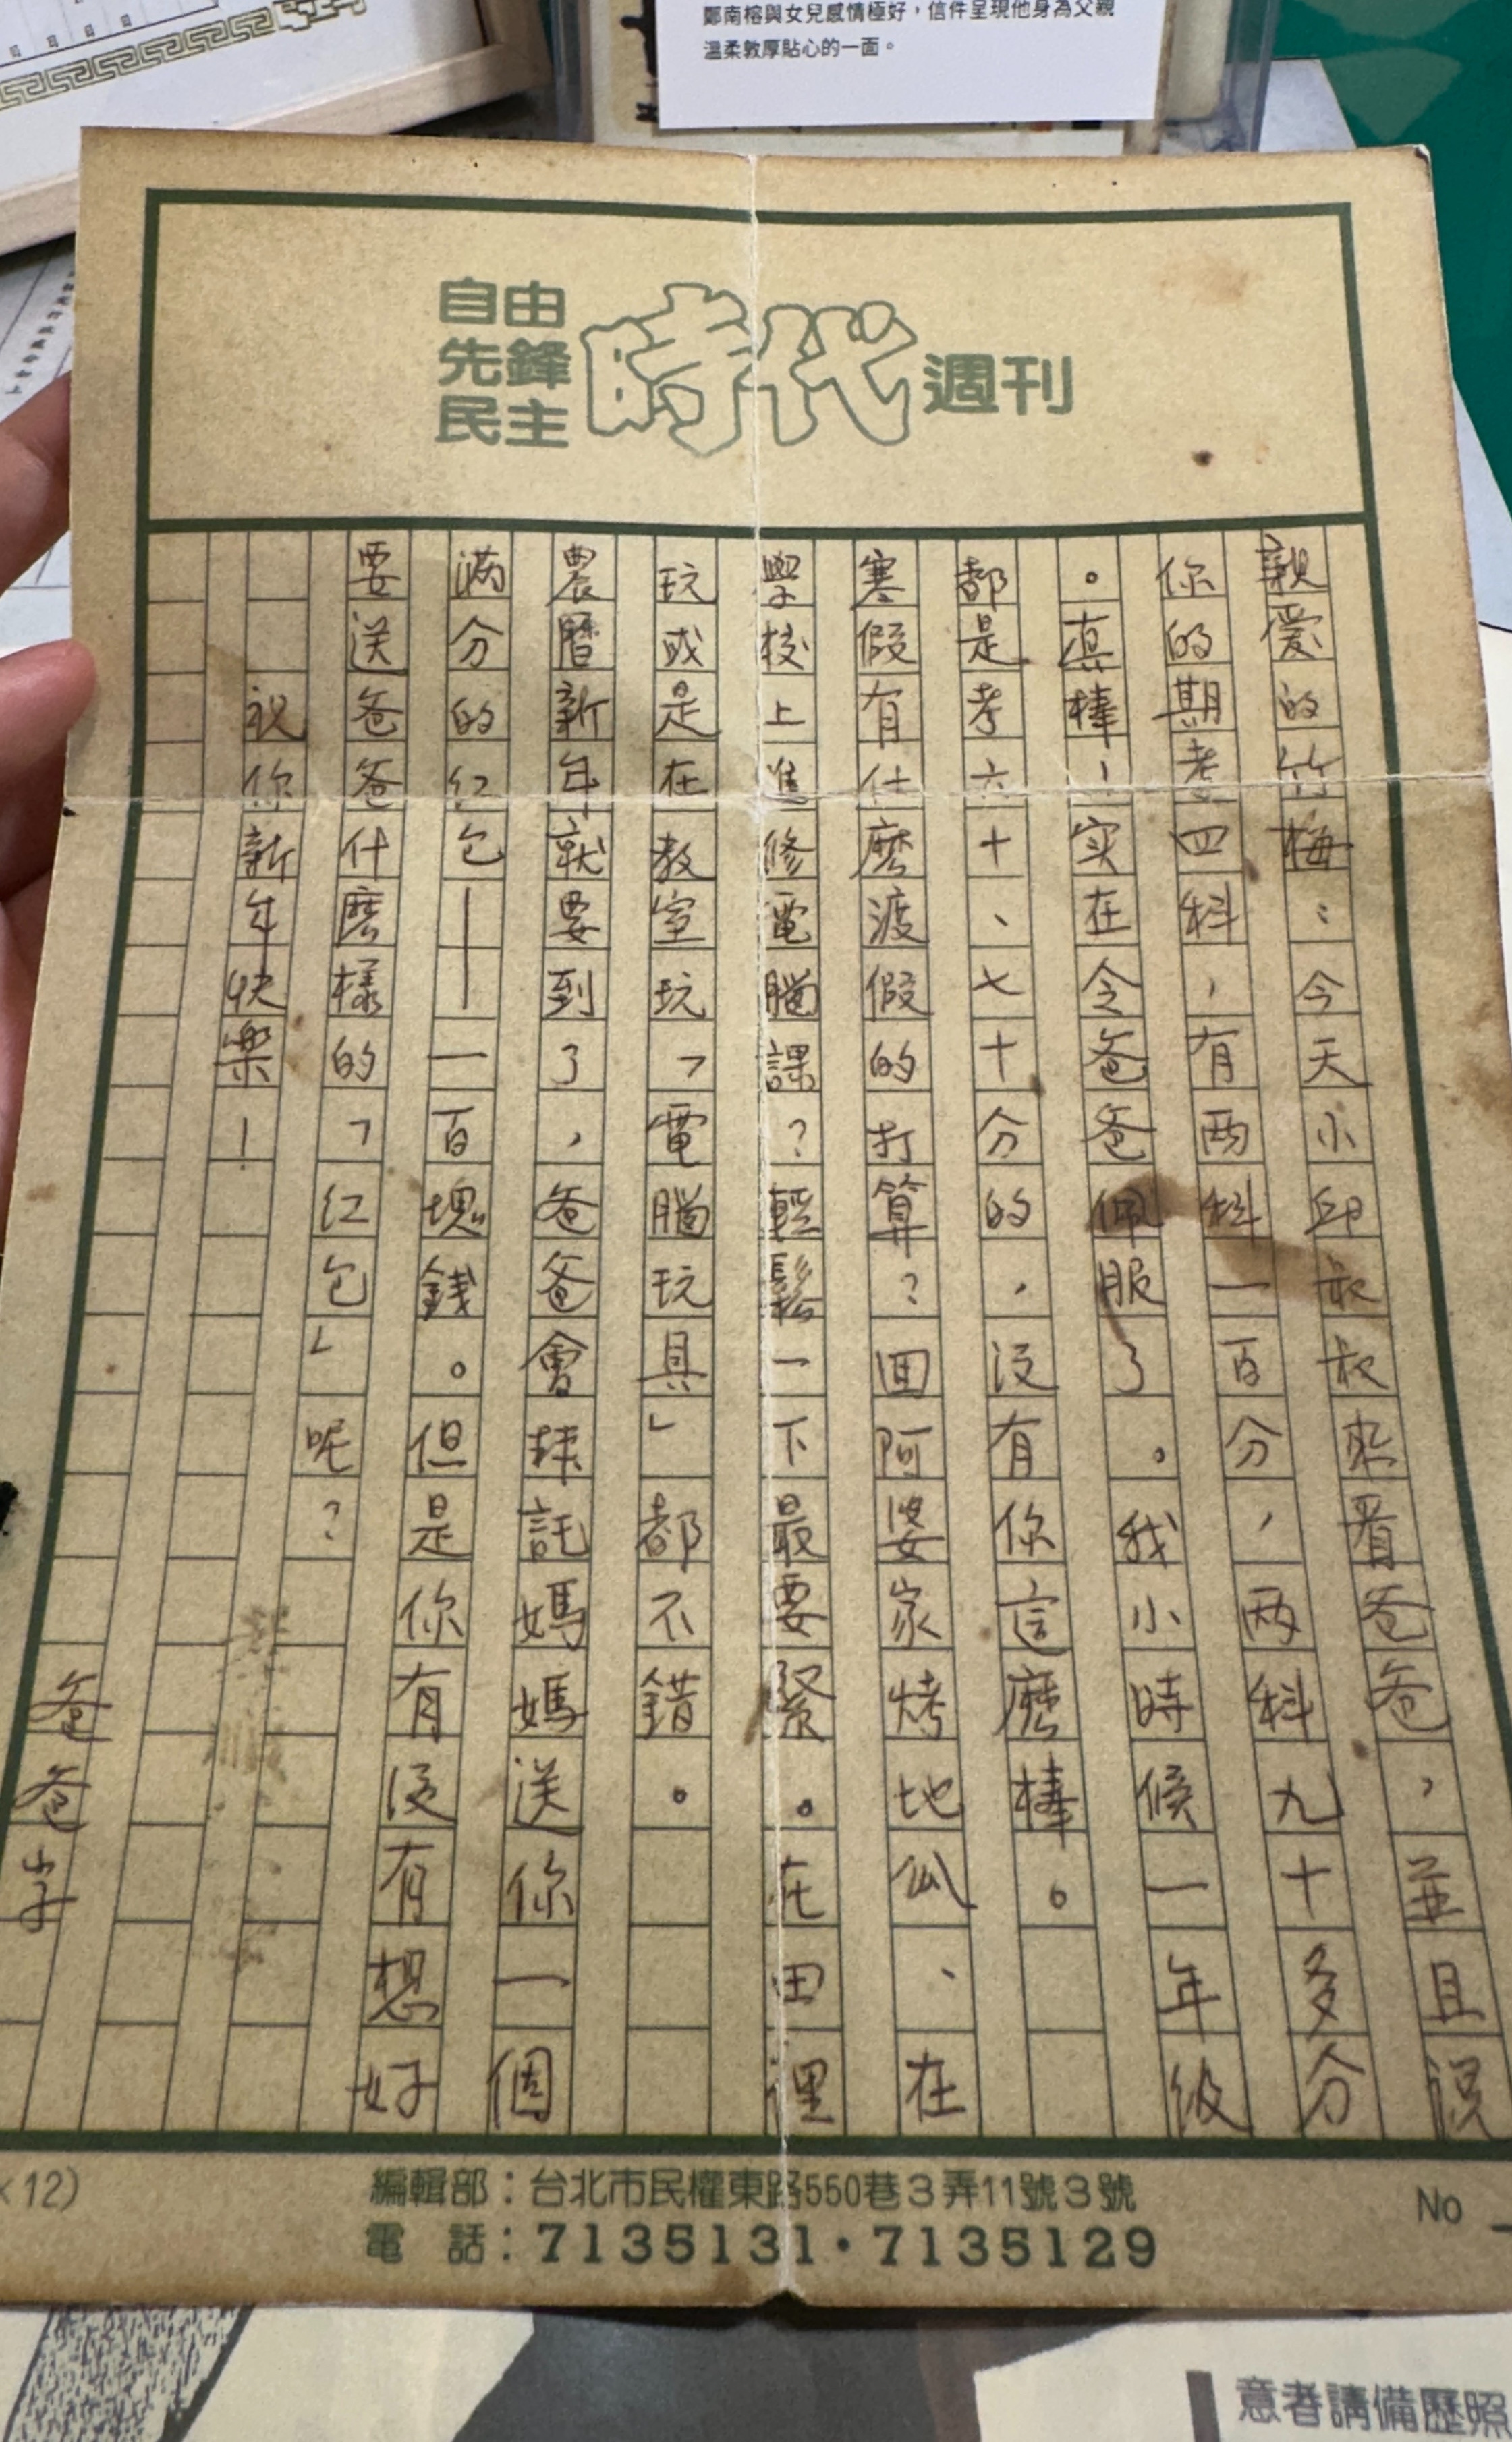 鄭南榕與女兒感情極好，信件呈現他身為父親
溫柔敦厚貼心的一面。
自由
先鋒
民主
時代
週刊
親愛的竹梅：今天小邱叔叔來看爸爸，並且說
你的期考四科，有兩科一百分，兩科九十多分
。真棒！实在令爸爸佩服了。我小時候一年級
都是考六十、七十分的，没有你這麼棒。
寒假有什麼渡假的打算？回阿婆家烤地瓜、在
學校上進修電腦課？輕鬆一下最要緊。在田裡
玩或是在教室玩「電腦玩具」都不錯。
農曆新年就要到了，爸爸會拜託媽媽送你一個
滿分的紅包——一百塊錢。但是你有没有想好
要送爸爸什麼樣的「紅包」呢？
祝你新年快樂！
爸爸字
×12)
編輯部：台北市民權東路550巷3弄11號3號
電 話：7135131・7135129
No
意者請備歷照